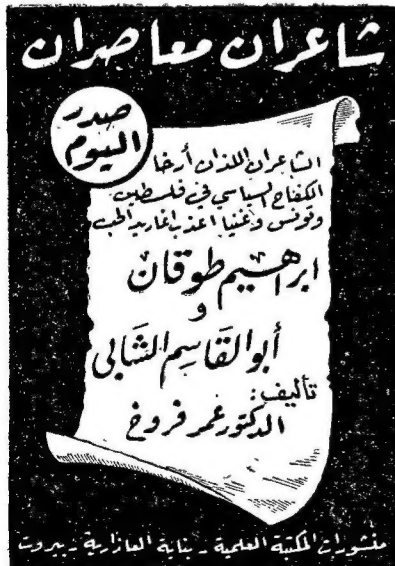 شاعران معاصران
صدر
اليوم
الشاعران اللذان أرخا
الكفاح السياسي في فلسطين
وتونس وغنيا اعذب اغاريد الحب
ابراهيم طوقان
و
أبو القاسم الشابي
تأليف:
الدكتور عمر فروخ
منشورات المكتبة العلمية ـ بناية العازارية ـ بيروت